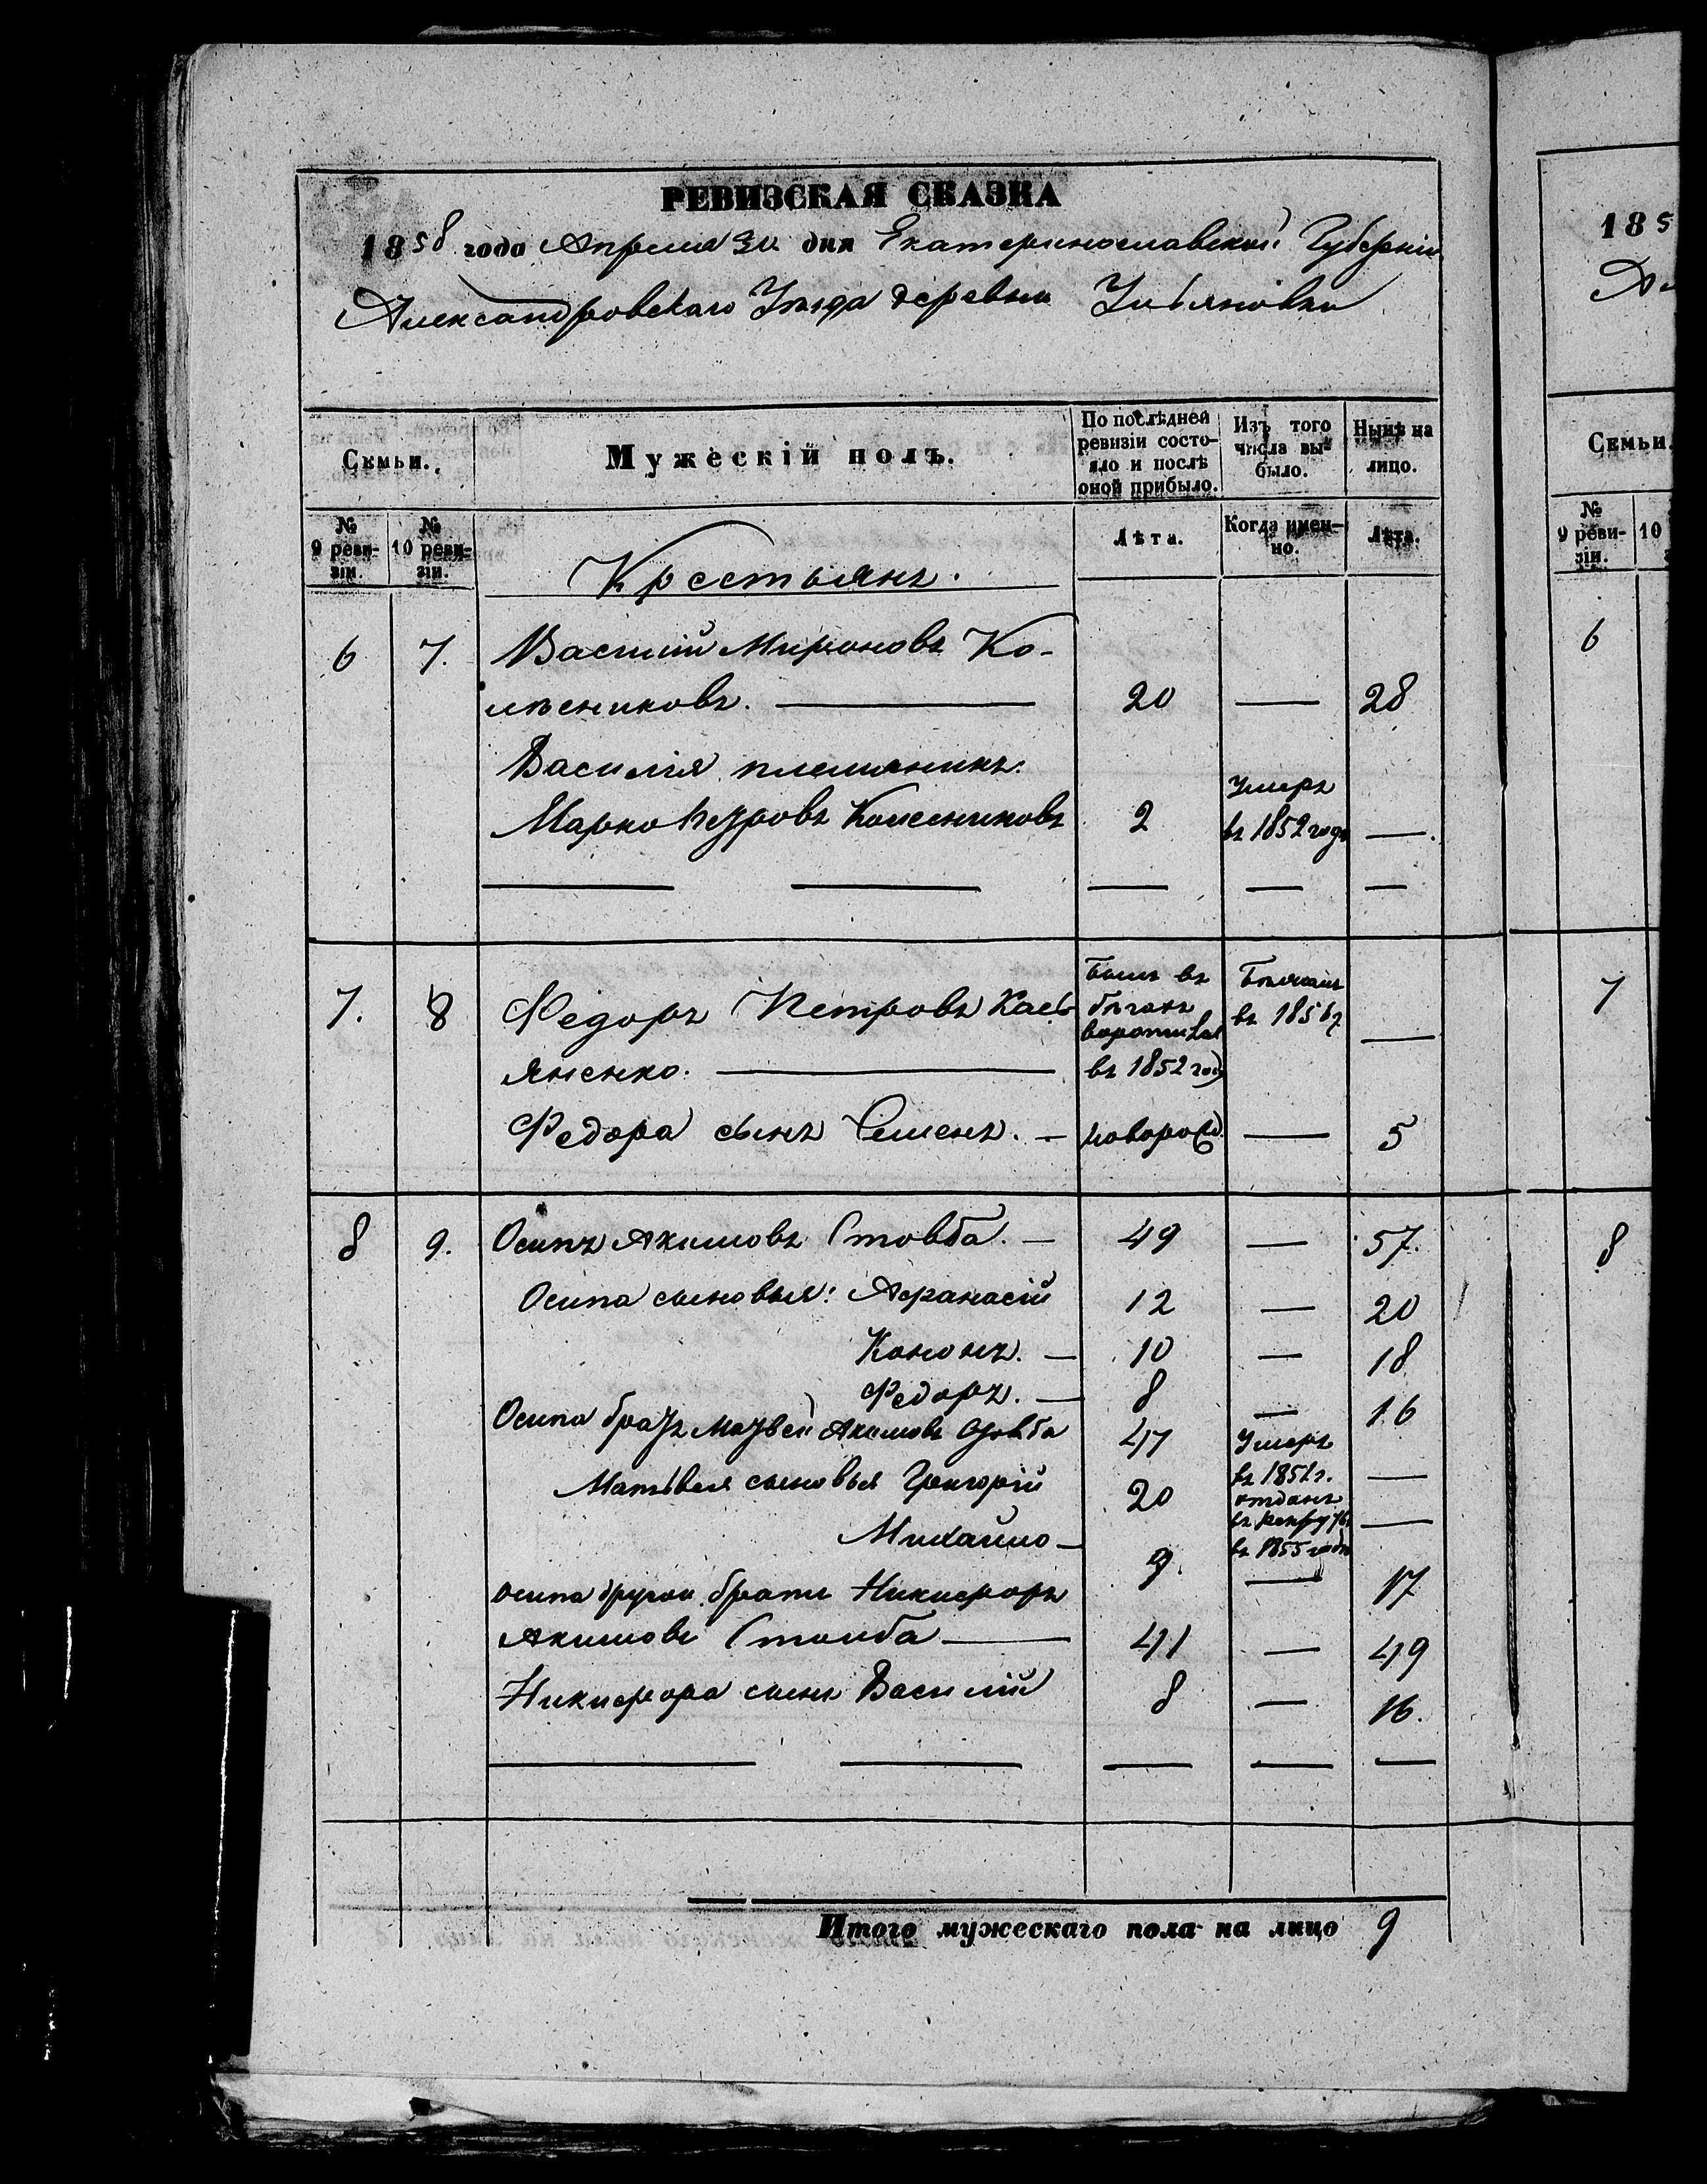 РЕВИЗСКАЯ СКАЗКА
1858 года Апреля 30 дня Екатеринославской Губерніи
Александровскаго Уезда деревни Ульяновки
Семьи.
Мужескій полъ.
По послѣдней ревизіи состояло и послѣ оной прибыло.
Изъ того числа выбыло.
Нынѣ на лицо.
№ 9 ревизіи.
№ 10 ревизіи.
Крестьянъ.
Лѣта.
Когда именно.
Лѣта.
6 7. Василий Мироновъ Ко-
лесниковъ. 20 — 28
Василія племянникъ:
Марко Петровъ Колесниковъ 2 Умеръ въ 1852 годѣ —
7. 8 Федоръ Петровъ Кась
яненко. Былъ въ бѣгахъ воротился въ 1852 году Бѣжалъ въ 1856 г —
Федора сынъ Семенъ. — новорож. — 5
8 9. Осипъ Акимовъ Стовба. — 49 — 57.
Осипа сыновья: Афанасій 12 — 20
Кононъ. — 10 — 18
Федоръ. — 8 — 16
Осипа братъ Матвей Акимовъ Стовба 47 Умеръ въ 1851 г. —
Матвея сыновья Григорій 20 отданъ въ рекруты въ 1855 годѣ —
Михайло — 9. — 17
Осипа другой братъ Никифоръ
Акимовъ Стовба 41 — 49
Никифора сынъ Василій 8 — 16.
Итого мужескаго пола на лицо 9
185
Семьи.
№ 9 ревизіи.
10
6
7
8